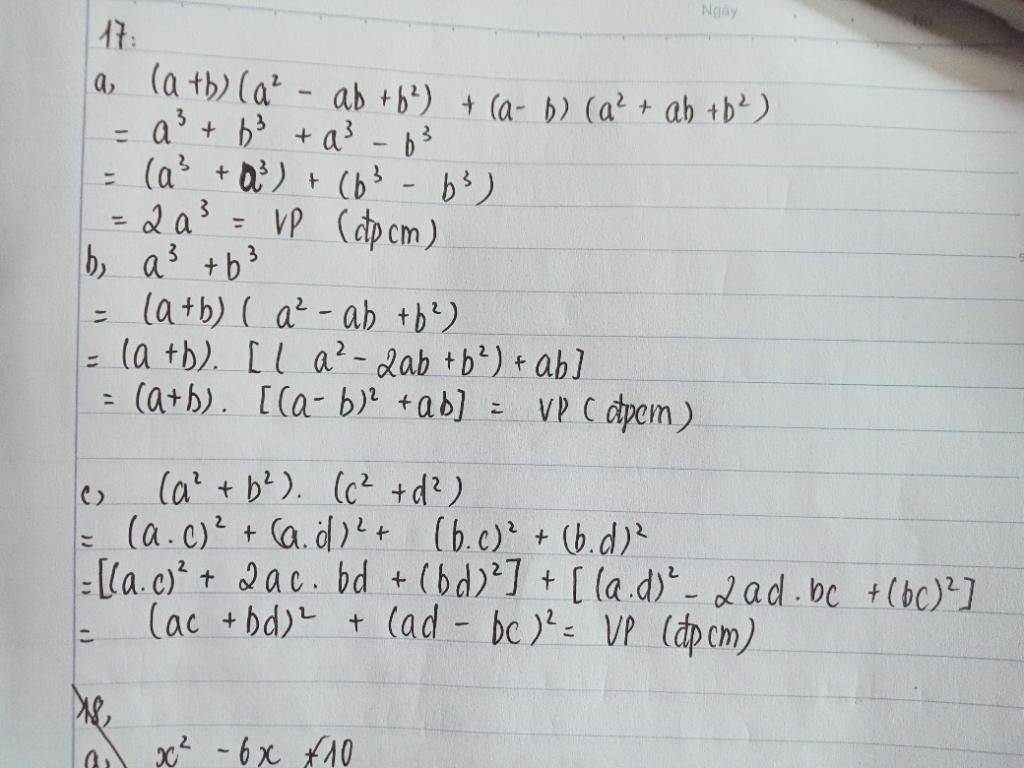 Ngày
No
17:
a, (a+b)(a² - ab + b²) + (a - b) (a² + ab + b²)
= a³ + b³ + a³ - b³
= (a³ + a³) + (b³ - b³)
= 2a³ = VP (đpcm)
b, a³ + b³
= (a+b) ( a² - ab + b²)
= (a+b). [( a² - 2ab + b²) + ab]
= (a+b). [(a - b)² + ab] = VP (đpcm)
c, (a² + b²). (c² + d²)
= (a.c)² + (a.d)² + (b.c)² + (b.d)²
=[(a.c)² + 2ac. bd + (bd)²] + [(a.d)² - 2ad.bc + (bc)²]
= (ac + bd)² + (ad - bc)² = VP (đpcm)
18,
a, x² - 6x + 10